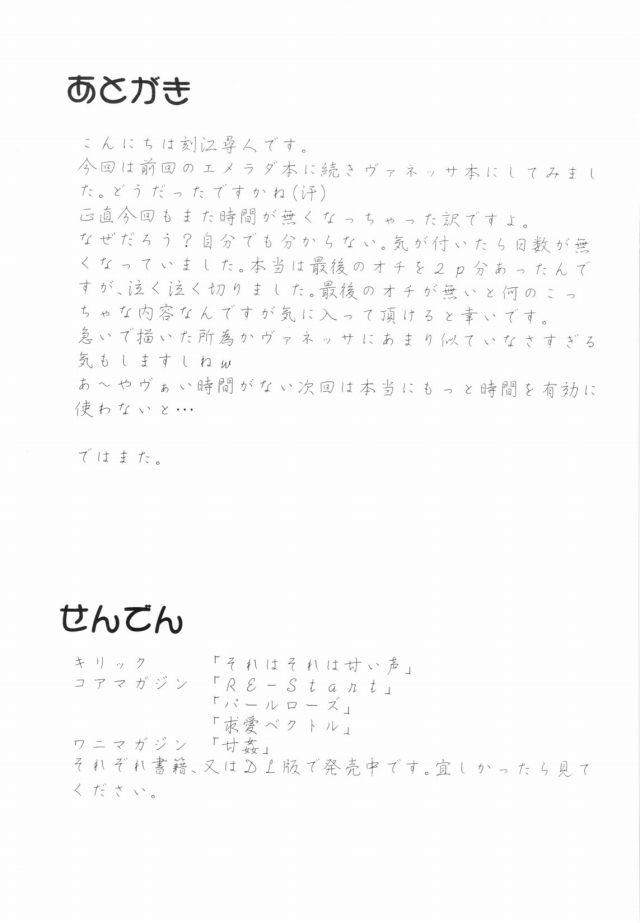 あとがき
こんにちは刻江尋人です。
今回は前回のエメラダ本に続きヴァネッサ本にしてみまし
た。どうだったですかね(汗)
正直今回もまた時間が無くなっちゃった訳ですよ。
なぜだろう?自分でも分からない。気が付いたら日数が無
くなっていました。本当は最後のオチを2p分あったんで
すが、泣く泣く切りました。最後のオチが無いと何のこっ
ちゃな内容なんですが気に入って頂けると幸いです。
急いで描いた所為かヴァネッサにあまり似ていなさすぎる
気もしますしねw
あ~やヴぁい時間がない次回は本当にもっと時間を有効に
使わないと…
ではまた。
せんでん
キリック 「それはそれは甘い声」
コアマガジン 「RE-Start」
「パールローズ」
「求愛ベクトル」
ワニマガジン 「甘姦」
それぞれ書籍、又はDL版で発売中です。宜しかったら見て
ください。